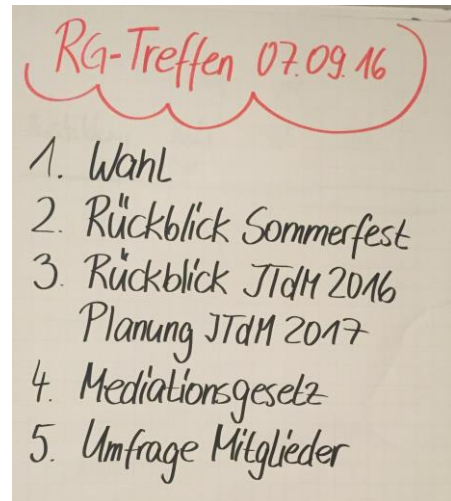 RG-Treffen 07.09.16
1. Wahl
2. Rückblick Sommerfest
3. Rückblick JTdM 2016
Planung JTdM 2017
4. Mediationsgesetz
5. Umfrage Mitglieder